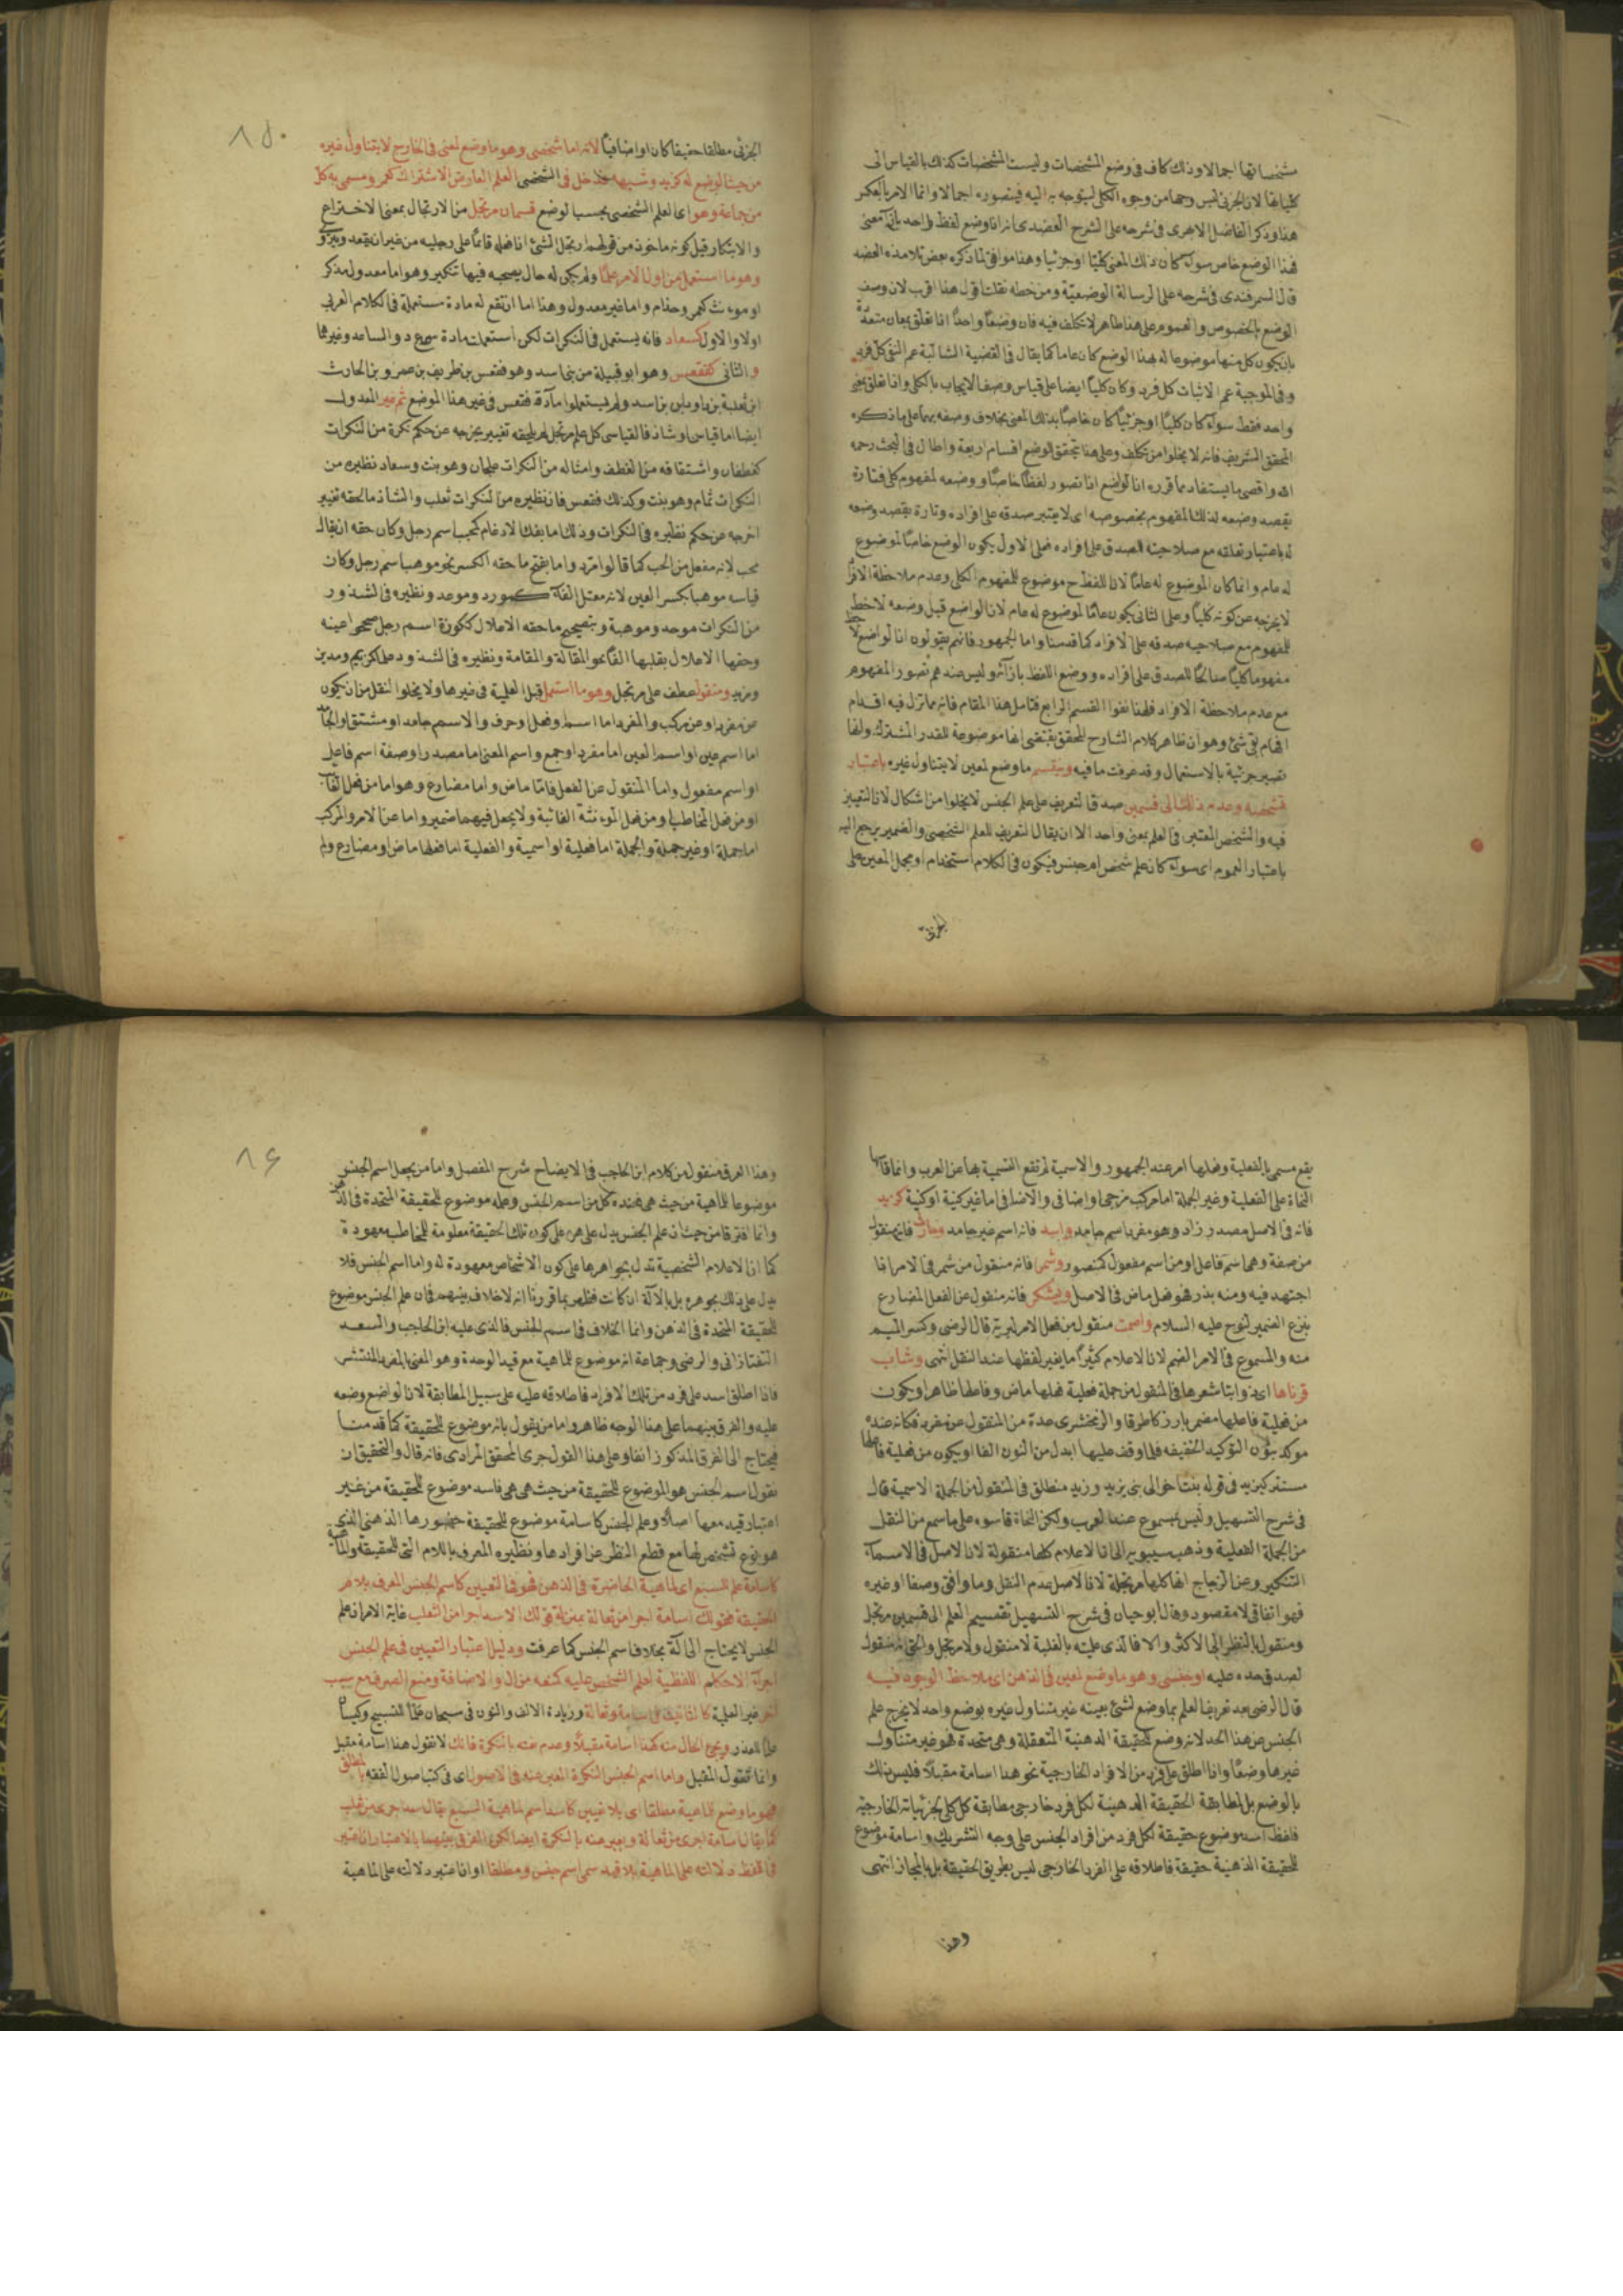 مشخصاتها اجمالا وذلك كاف في وضع المشخصات وليست المشخصات كذلك بالقياس الى
كلياتها لان الجزئي ليس وجها من وجوه الكلي ليتوجه به اليه فيتصوره اجمالا وانما الامر بالعكس
هذا وذكر الفاضل الابهري في شرحه على الشرح العضدي انه اذا وضع لفظ واحد بازآء معنى
فهذا الوضع خاص سوآء كان ذلك المعنى كليا او جزئيا وهذا موافق لما ذكره بعض تلامذة العضد
قال السمرقندي في شرحه على الرسالة الوضعية ومن خطه نقلت اقول هذا اقرب لان وصف
الوضع بالخصوص والعموم على هذا ظاهر لا تكلف فيه فان وضعا واحدا اذا تعلق بمعان متعددة
بان يكون كل منها موضوعا له بهذا الوضع كان عاما كما يقال في القضية السالبة عم النفي كل فرد
وفي الموجبة عم الاثبات كل فرد وكان كليا ايضا على قياس وصف الايجاب بالكلي واذا تعلق بمعنى
واحد فقط سوآء كان كليا او جزئيا كان خاصا بذلك المعنى بخلاف وصفه بهما على ما ذكره
المحقق الشريف فانه لا يخلوا من تكلف وعلى هذا تتحقق للوضع اقسام اربعة واطال في البحث رحمه
الله واقصى ما يستفاد مما قرره ان الواضع اذا تصور لفظا خاصا ووضعه لمفهوم كلي فتارة
يقصد وضعه لذلك المفهوم بخصوصه اي لا يعتبر صدقه على افراده وتارة يقصد وضعه
له باعتبار تعلقه مع صلاحيته للصدق على افراده فعلى الاول يكون الوضع خاصا لموضوع
له عام وانما كان الموضوع له عاما لان اللفظ ح موضوع للمفهوم الكلي وعدم ملاحظة الافراد
لا يخرجه عن كونه كليا وعلى الثاني يكون عاما لموضوع له عام لان الواضع قبل وضعه لاحظ
المفهوم مع صلاحية صدقه على الافراد كما قدمنا واما الجمهور فانهم يقولون ان الواضع لاحظ
مفهوما كليا صالحا للصدق على افراده ووضع اللفظ بازآئه وليس عندهم تصور المفهوم
مع عدم ملاحظة الافراد فلهذا نفوا القسم الرابع فتامل هذا المقام فانه مما تزل فيه اقدام
افهام بقى شئ وهو ان ظاهر كلام الشارح المحقق يقتضي انها موضوعة للقدر المشترك وانها
تصير جزئية بالاستعمال وقد عرفت ما فيه وينقسم ما وضع لمعين لا يتناول غيره باعتبار
تشخصه وعدم ذلك الى قسمين صدق التعريف على علم الجنس لا يخلوا من اشكال لان التعيين
فيه والتشخص المعتبر في العلم بمعنى واحد الا ان يقال التعريف للعلم الشخصي والضمير يرجع اليه
باعتبار العموم اي سوآء كان علم شخص ام جنس فيكون في الكلام استخدام او يحمل المعين على
الجزئي
٨٥٠
الجزئي مطلقا حقيقيا كان او اضافيا لانه اما شخصي وهو ما وضع لمعنى في الخارج لا يتناول غيره
من حيث الوضع له كزيد وشبهه فدخل في الشخصي العلم العارض الاشتراك كعمرو مسمى به كل
من جماعة وهو اي العلم الشخصي بحسب الوضع قسمان مرتجل من الارتجال بمعنى الاختراع
والابتكار قيل كونه ماخوذ من قولهم ارتجل الشئ اذا فعله قائما على رجليه من غير ان يقعد ويتروى
وهو ما استعمل من اول الامر علما ولم يكن له حال يصحبه فيها تنكير وهو اما معدول مذكر
او مؤنث كعمر وحذام واما غير معدول وهذا اما ان تقع له مادة مستعملة في الكلام العربي
اولا والاول كسعاد فانه يستعمل في النكرات لكن استعملت مادة س ع د والساعد وغيرهما
والثاني كفقعس وهو ابو قبيلة من بني اسد وهو فقعس بن طريف بن عمرو بن الحارث
ابن ثعلبة بن دودان بن اسد ولم يستعملوا مادة فقعس في غير هذا الموضع ثم غير المعدول
ايضا اما قياسي او شاذ فالقياسي كل علم مرتجل لم يلحقه تغيير يخرجه عن حكم نكرة من النكرات
كغطفان واشتقاقه من الغطف وامثاله من النكرات علجان وهو نبت وسعاد نظيره من
النكرات ثمام وهو نبت وكذلك فقعس فان نظيره من النكرات ثعلب والشاذ ما لحقه تغيير
اخرجه عن حكم نظيره في النكرات وذلك اما بفك الادغام كمحبب اسم رجل وكان حقه ان يقال
محب لانه مفعل من الحب كما قالوا مرد واما بفتح ما حقه الكسر نحو موهب اسم رجل وكان
قياسه موهبا بكسر العين لانه معتل الفآء كمورد وموعد ونظيره في الشذور
من النكرات موحد وموهبة وبتصحيح ما حقه الاعلال ككوزة اسم رجل صححوا عينه
وحقها الاعلال بقلبها الفا نحو المقالة والمقامة ونظيره في الشذوذ على مكريم ومدين
ومزيد ومنقول عطف على مرتجل وهو ما استعمل قبل العلمية في غيرها ولا يخلوا النقل من ان يكون
عن مفرد او عن مركب والمفرد اما اسم او فعل او حرف والاسم جامد او مشتق والجامد
اما اسم عين او اسم معنى العين اما مفرد او جمع واسم المعنى اما مصدر او صفة اسم فاعل
او اسم مفعول واما المنقول عن الفعل فاما ماض واما مضارع وهو اما من فعل الغائب
او من فعل المخاطب او من فعل المؤنثة الغائبة ولا يجعل فيهما ضمير واما عن الامر والمركب
اما جملة او غير جملة والجملة اما فعلية او اسمية والفعلية اما فعلها ماض او مضارع ولم
يقع مسمى بالفعلية وفعلها امر عند الجمهور والاسمية لم تقع التسمية بها عن العرب وانما قاسها
النحاة على الفعلية وغير الجملة اما مركب مزجي او اضافي والاضافي اما غير كنية او كنية كزيد
فانه في الاصل مصدر زاد وهو مفرد اسم جامد واسد فانه اسم غير جامد وحارث فانه منقول
من صفة وهي اسم فاعل او من اسم مفعول كمنصور وشمر فانه منقول من شمر في الامر اذا
اجتهد فيه ومنه بذر فهو فعل ماض في الاصل ويشكر فانه منقول عن الفعل المضارع
بنزع الضمير لنوح عليه السلام واصمت منقول من فعل الامر لبرية قال الرضي وكسر الميم
منه والمسموع في الامر الضم لان الاعلام كثيرا ما يغير لفظها عند النقل انتهى وشاب
قرناها اي ذوابتا شعرها في المنقول من جملة فعلية فعلها ماض وفاعلها ظاهر او يكون
من فعلية فاعلها مضمر بارز كاطرقا والزمخشري عده من المنقول عن مفرد فكانه عنده
موكد بنون التوكيد الخفيفة فلما وقف عليها ابدل من النون الفا او يكون من فعلية فاعلها
مستتر كيزيد في قوله نبئت اخوالي بني يزيد وزيد منطلق في المنقول من الجملة الاسمية قال
في شرح التسهيل وليس بمسموع عند العرب ولكن النحاة قاسوه على ما سمع من النقل
من الجملة الفعلية وذهب سيبويه الى ان الاعلام كلها منقولة لان الاصل في الاسمآء
التنكير وعن الزجاج انها كلها مرتجلة لان الاصل عدم النقل وما وافق وصفا او غيره
فهو اتفاقي لا مقصود وقال ابو حيان في شرح التسهيل تقسيم العلم الى قسمين مرتجل
ومنقول بالنظر الى الاكثر والا فالذي علميته بالغلبة لا منقول ولا مرتجل والحق انه منقول
لصدق حده عليه او جنسي وهو ما وضع لمعين في الذهن اي ملاحظ الوجود فيه
قال الرضي بعد تعريف العلم بما وضع لشئ بعينه غير متناول غيره بوضع واحد لا يخرج علم
الجنس عن هذا الحد لانه وضع للحقيقة الذهنية المتعقلة وهي متحدة فهو غير متناول
غيرها وضعا واذا اطلق على فرد من الافراد الخارجية نحو هذا اسامة مقبلا فليس ذلك
بالوضع بل لمطابقة الحقيقة الذهنية لكل فرد خارجي مطابقة كل كلي لجزئياته الخارجية
فلفظ اسد موضوع حقيقة لكل فرد من افراد الجنس على وجه التشريك واسامة موضوع
للحقيقة الذهنية حقيقة فاطلاقه على الفرد الخارجي ليس بطريق الحقيقة بل بالمجاز انتهى
وهذا
٨٦
وهذا الفرق منقول من كلام ابن الحاجب في الايضاح شرح المفصل واما من يجعل اسم الجنس
موضوعا للماهية من حيث هي فعنده كل من اسم الجنس وعلمه موضوع للحقيقة المتحدة في الذهن
وانما افترقا من حيث ان علم الجنس يدل على كون تلك الحقيقة معلومة للمخاطب معهودة
كما ان الاعلام الشخصية تدل بجواهرها على كون الاشخاص معهودة له واما اسم الجنس فلا
يدل على ذلك بجوهره بل بالآلة ان كانت فظهر بما قررنا انه لا خلاف بينهم في ان علم الجنس موضوع
للحقيقة المتحدة في الذهن وانما الخلاف في اسم الجنس فالذي عليه ابن الحاجب والسعد
التفتازاني والرضي وجماعة انه موضوع للماهية مع قيد الوحدة وهو المعني بالفرد المنتشر
فاذا اطلق اسد على فرد من تلك الافراد فاطلاقه عليه على سبيل المطابقة لان الواضع وضعه
عليه والفرق بينهما على هذا الوجه ظاهر واما من يقول بانه موضوع للحقيقة كما قدمنا
فيحتاج الى الفرق المذكور انفا وعلى هذا القول جرى المحقق المرادي فانه قال والتحقيق ان
نقول اسم الجنس هو الموضوع للحقيقة من حيث هي هي فاسد موضوع للحقيقة من غير
اعتبار قيد معها اصلا وعلم الجنس كاسامة موضوع للحقيقة حضورها الذهني الذي
هو نوع تشخص لها مع قطع النظر عن افرادها ونظيره المعرف باللام التي للحقيقة والماهية
كاسامة علم للسبع اي لماهية الحاضرة في الذهن فهو في التعيين كاسم الجنس المعرف بلام
الحقيقة فقولك اسامة اجرا من ثعالة بمنزلة قولك الاسد اجرا من الثعلب غاية الامر ان علم
الجنس لا يحتاج الى آلة بخلاف اسم الجنس كما عرفت ودليل اعتبار التعيين في علم الجنس
اجرآء الاحكام اللفظية لعلم الشخص عليه كمنعه من ال والاضافة ومنع الصرف مع سبب
آخر غير العلمية كالتانيث في اسامة وثعالة وزيادة الالف والنون في سبحان علما للتسبيح وكيسان
علما للغدر ويجئ الحال منه كهذا اسامة مقبلا وعدم نعته بالنكرة فانك لا تقول هذا اسامة مقبل
وانما تقول المقبل واما اسم الجنس النكرة المعبر عنه في الاصول اي في كتب اصول الفقه بالمطلق
فهو ما وضع للماهية مطلقا اي بلا تعيين كاسد اسم لماهية السبع يقال اسد اجرى من ثعلب
كما يقال اسامة اجرى من ثعالة ويعبر عنه بالنكرة ايضا لكن الفرق بينهما بالاعتبار ان اعتبر
في اللفظ دلالته على الماهية بلا قيد سمى اسم جنس ومطلقا او ان اعتبر دلالته على الماهية